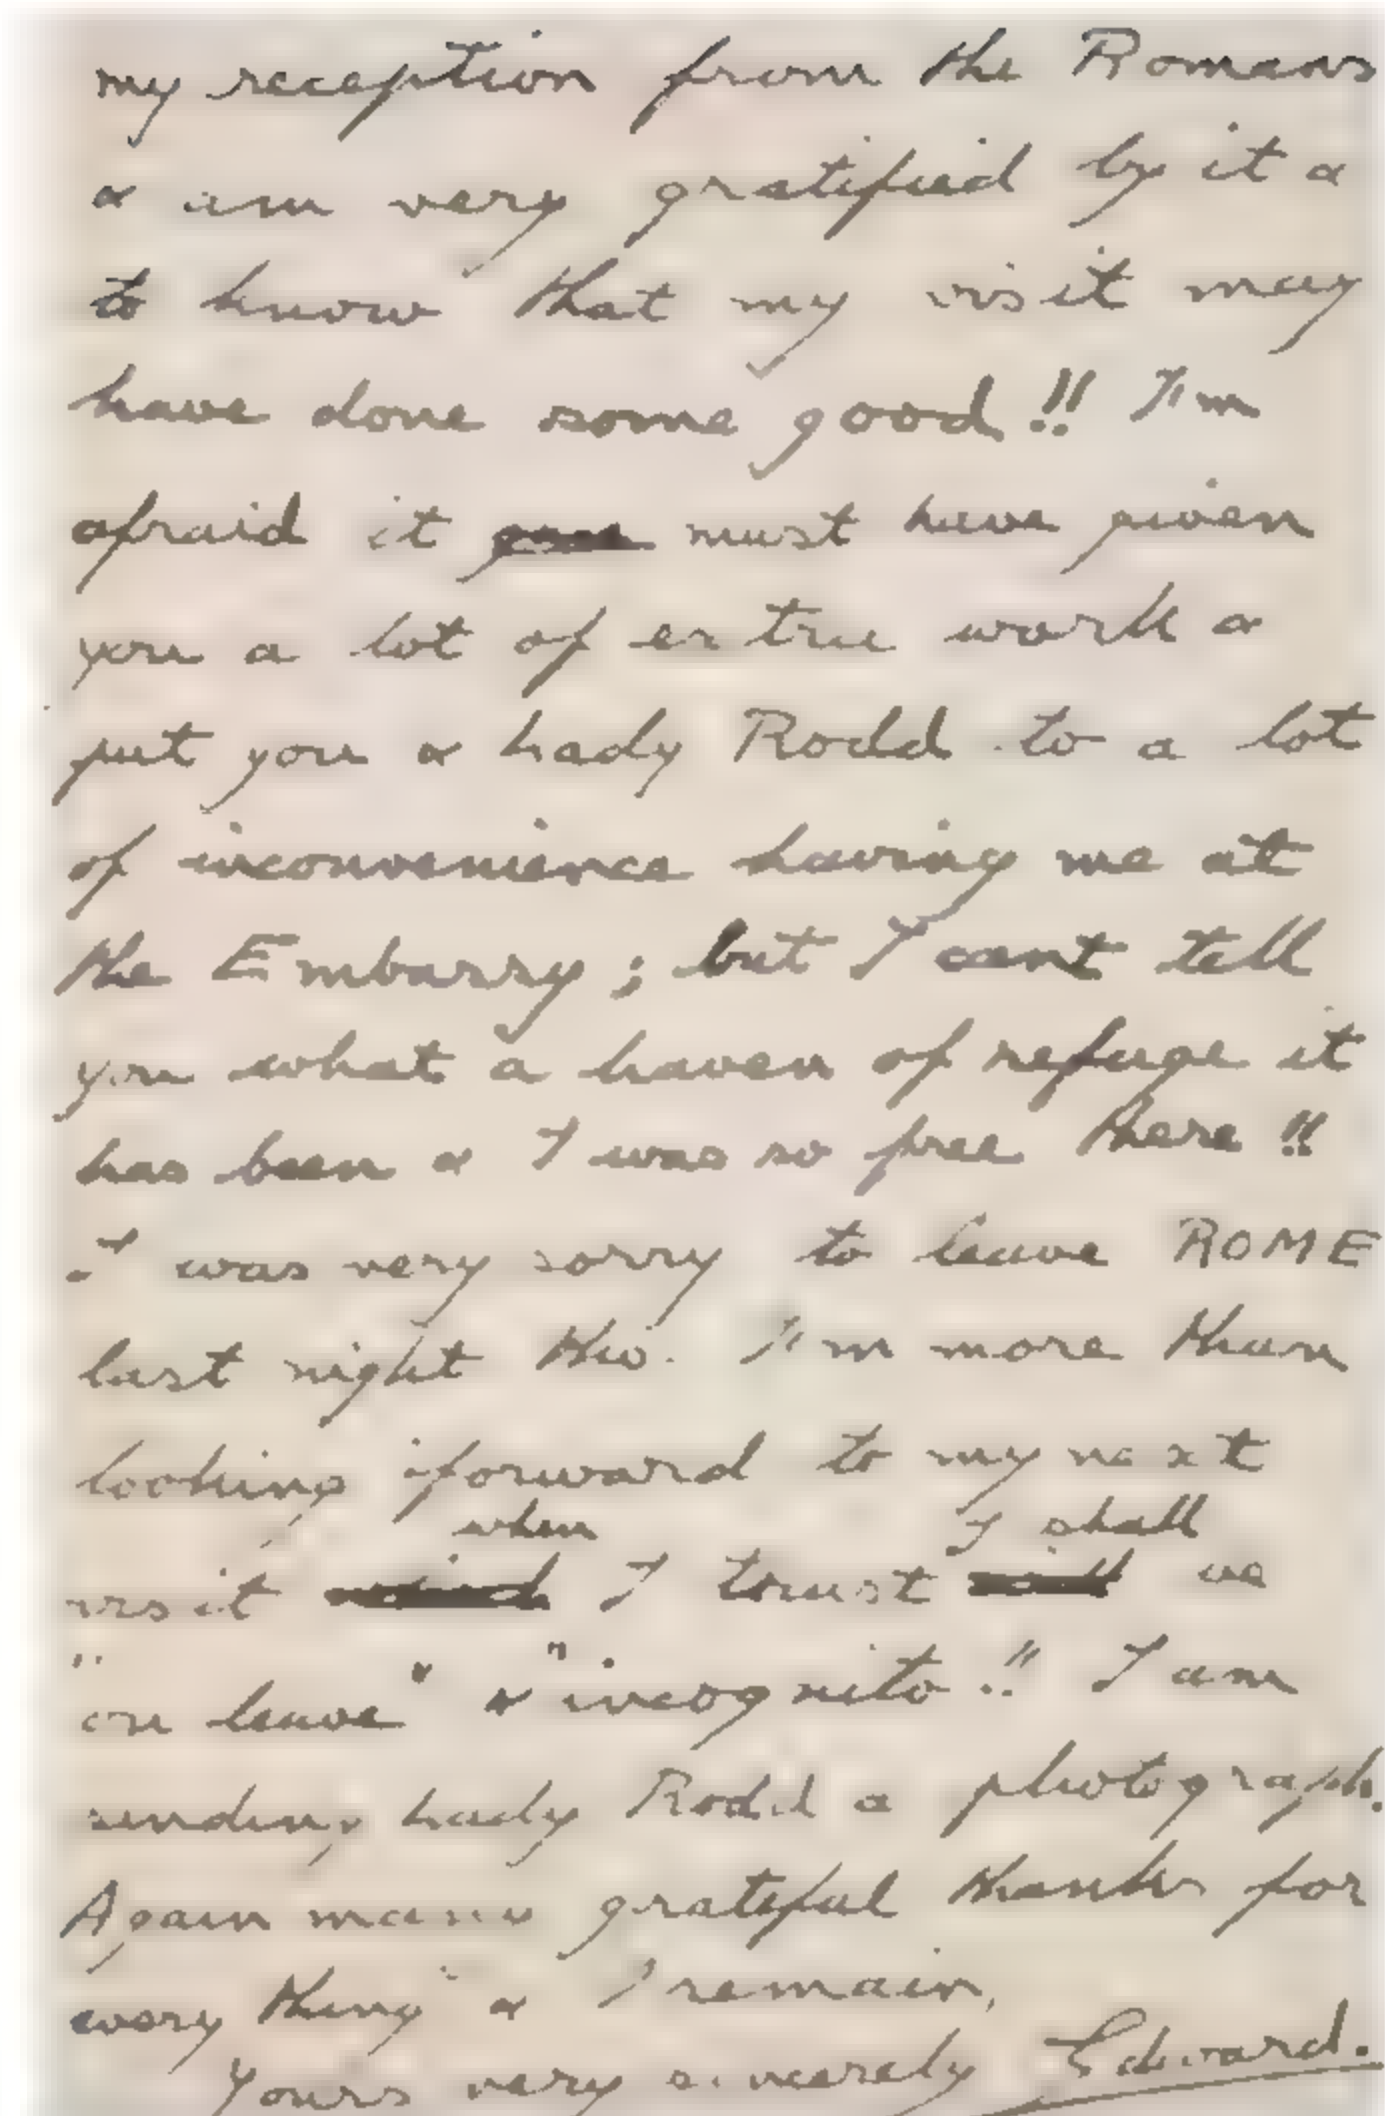 my reception from the Romans
& am very gratified by it &
to know that my visit may
have done some good!! I'm
afraid it must have given
you a lot of extra work &
put you & Lady Rodd to a lot
of inconvenience having me at
the Embassy; but I cant tell
you what a haven of refuge it
has been & I was so free there!!
I was very sorry to leave ROME
last night tho. I'm more than
looking forward to my next
when I shall
visit I trust be
"on leave" & "incognito"!! I am
sending Lady Rodd a photograph.
Again many grateful thanks for
every thing & I remain,
Yours very sincerely Edward.